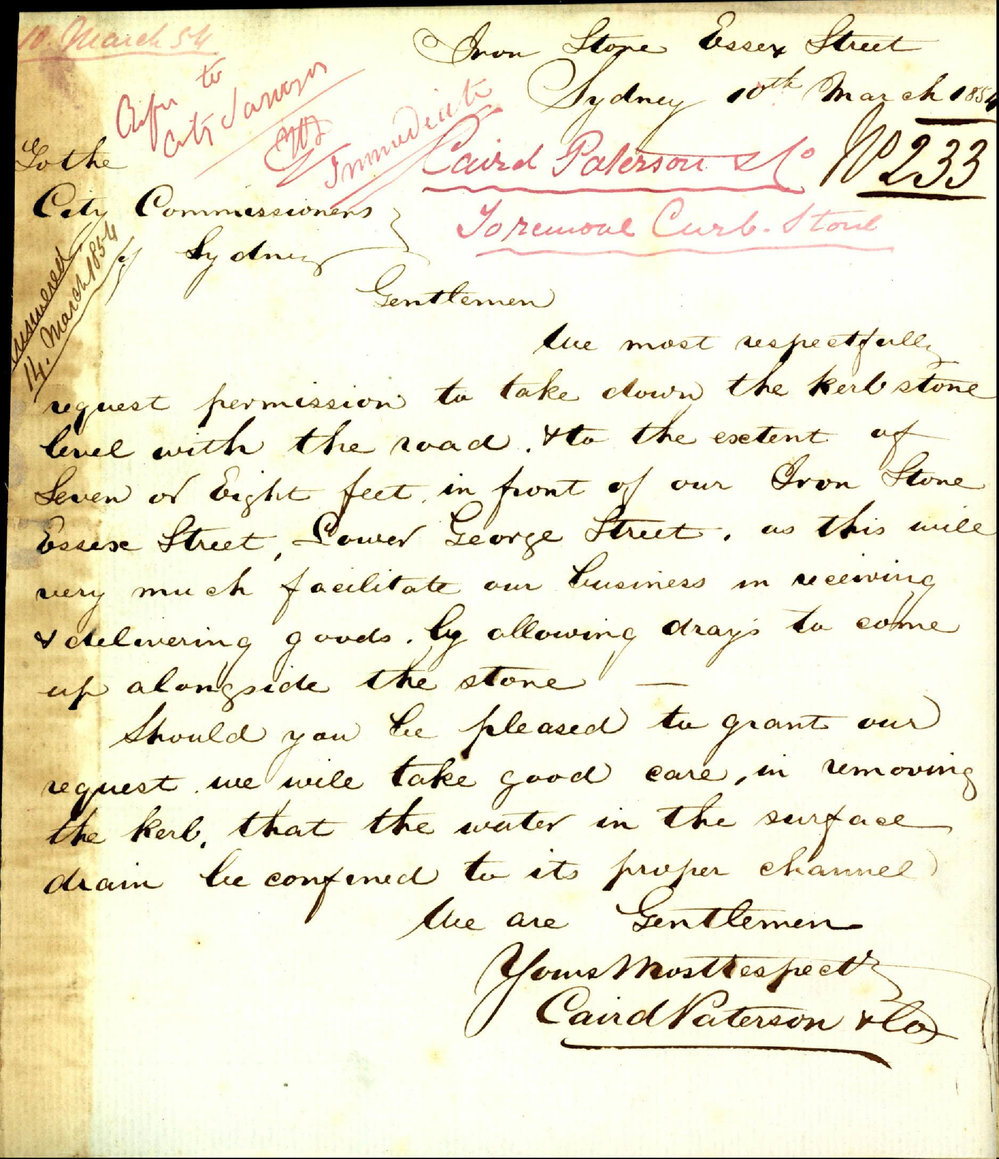 10. March 54
Iron Store Essex Street
Sydney 10th March 1854
Refer to
City Surveyor
Immediate
Caird Paterson & Co
No 233
To remove Curb-Stone
To the
City Commissioners
of Sydney
Answered
14. March 1854
Gentlemen
We most respectfully
request permission to take down the kerb stone
level with the road. & to the extent of
Seven or Eight feet, in front of our Iron Store
Essex Street, Lower George Street, as this will
very much facilitate our business in receiving
& delivering goods, by allowing drays to come
up alongside the store —
Should you be pleased to grant our
request we will take good care, in removing
the kerb, that the water in the surface
drain be confined to its proper channel
We are Gentlemen
Yours Most Respecty
Caird Paterson & Co